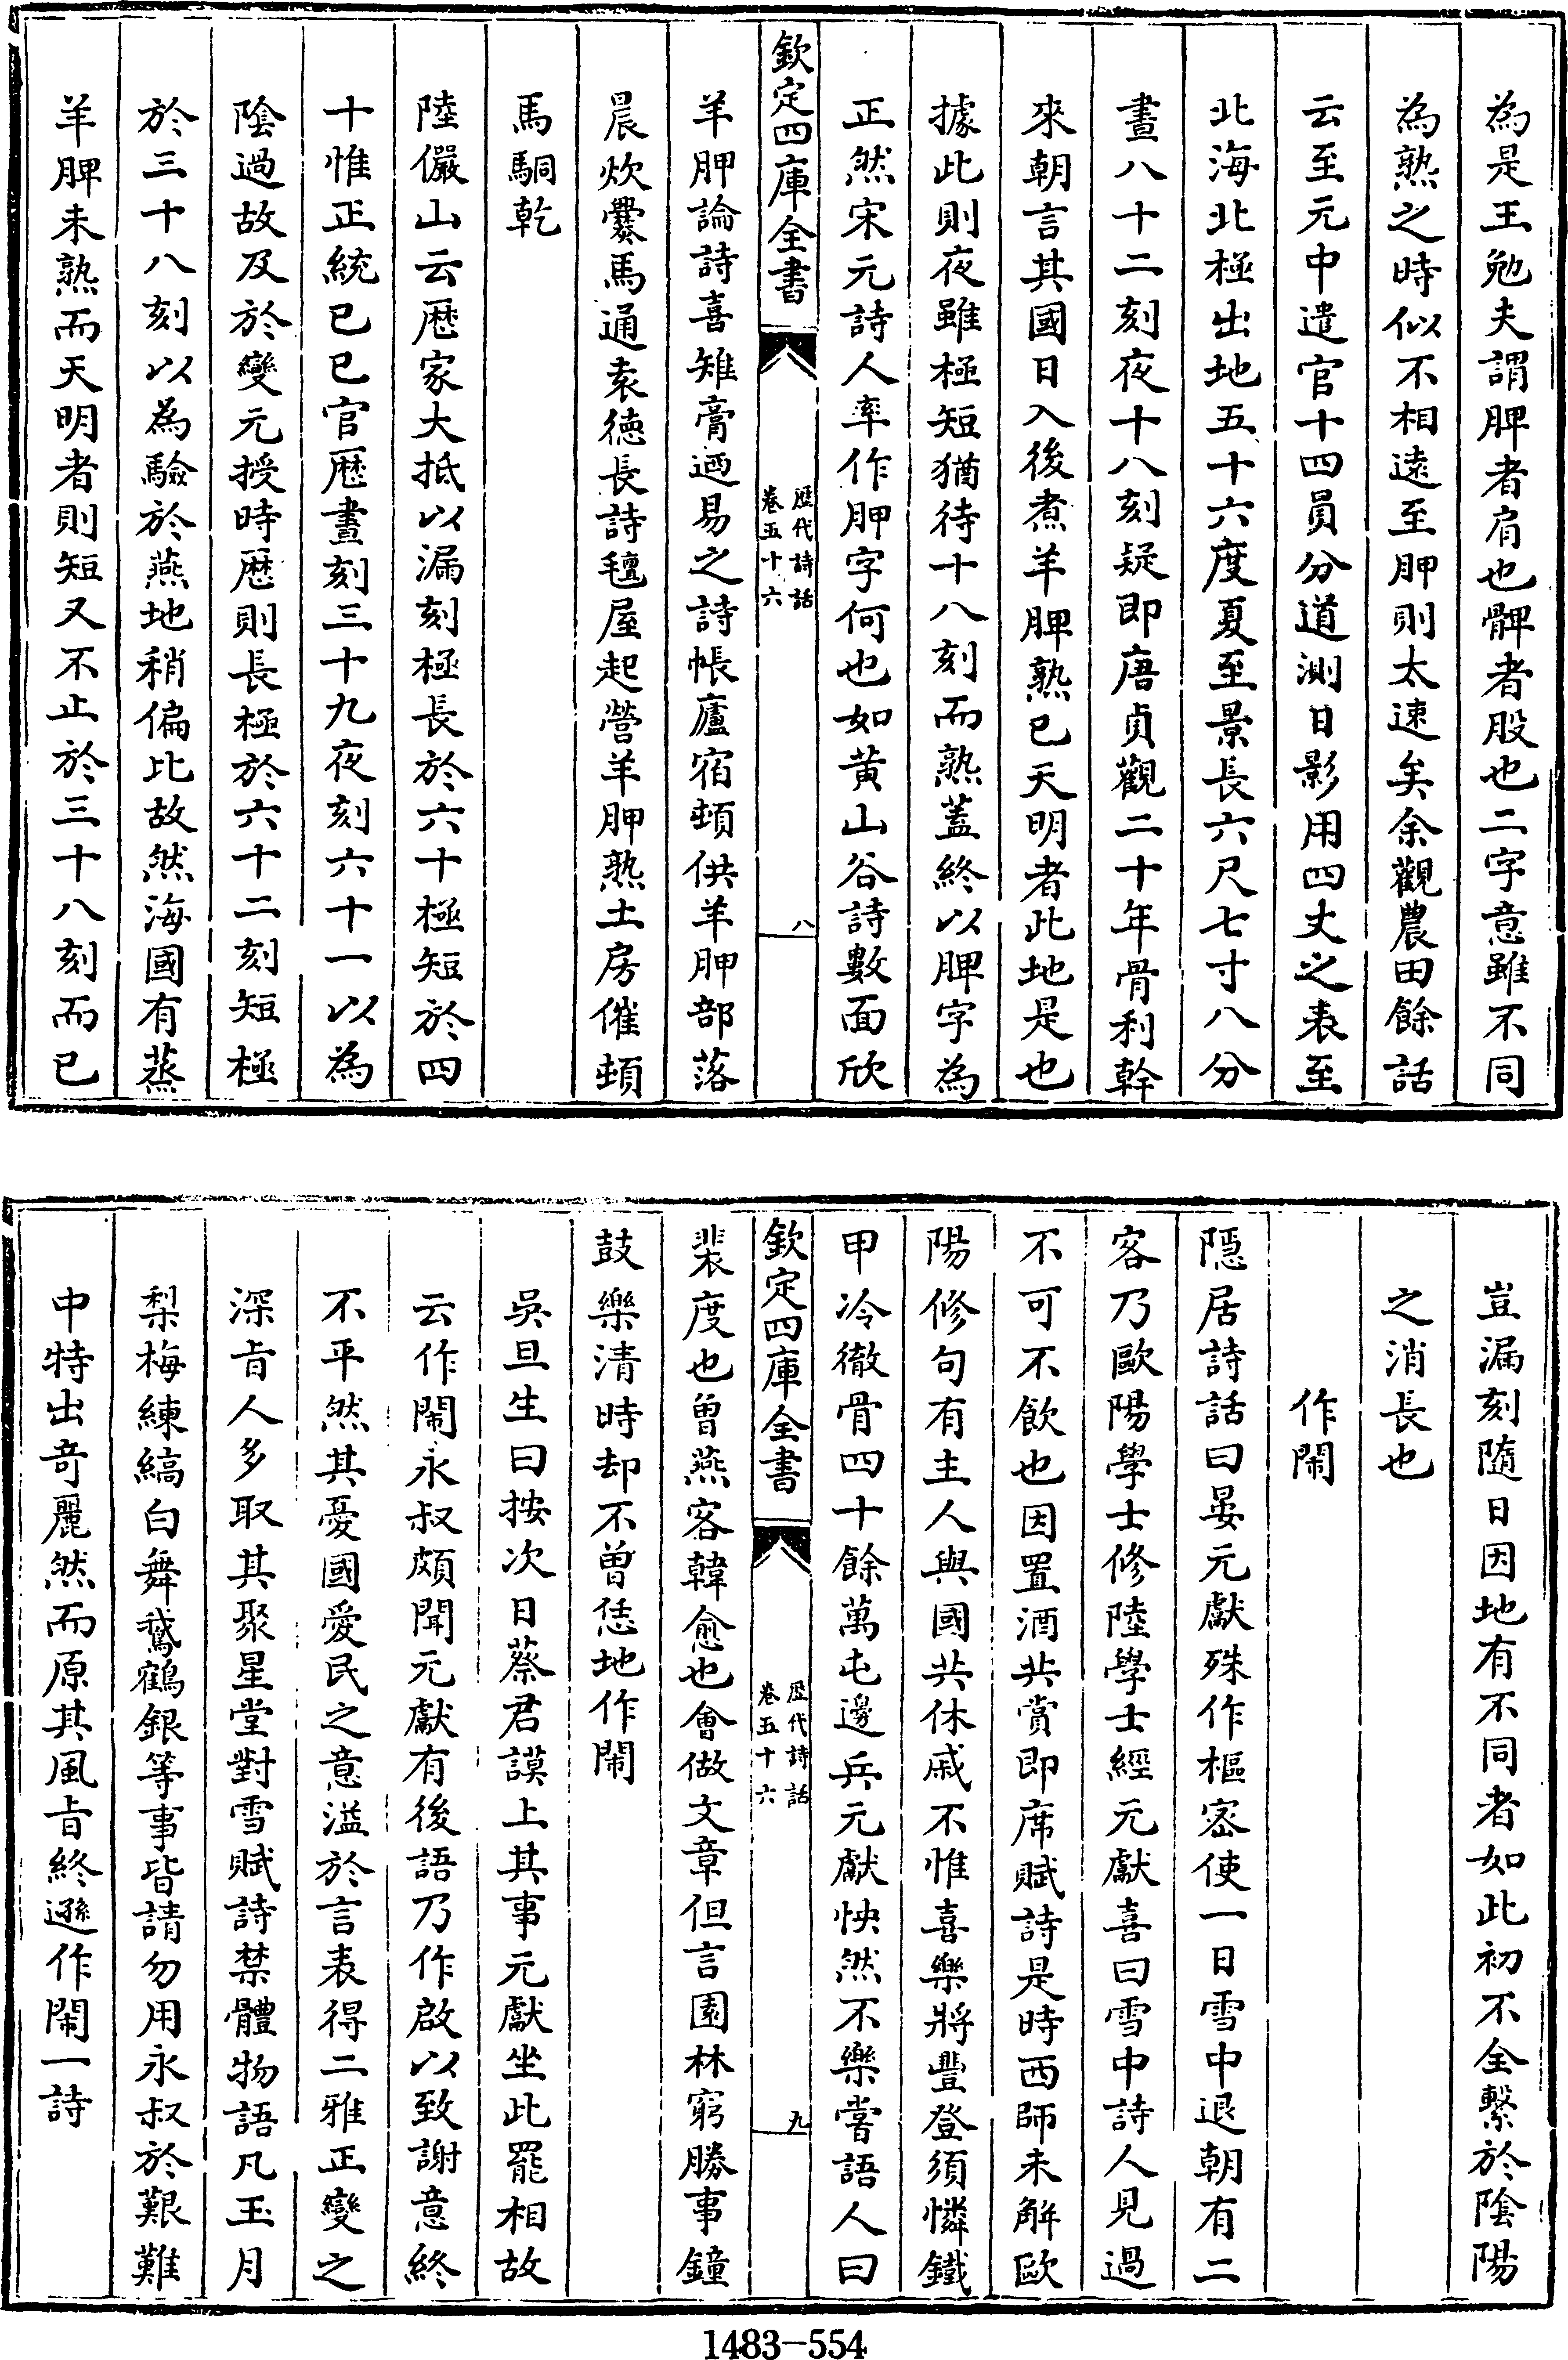 為是王勉夫謂脾者肩也髀者股也二字意雖不同
為熟之時似不相遠至胛則太速矣余觀農田餘話
云至元中遣官十四員分道測日影用四丈之表至
北海北極出地五十六度夏至景長六尺七寸八分
晝八十二刻夜十八刻疑即唐貞觀二十年骨利幹
來朝言其國日入後煮羊脾熟已天明者此地是也
據此則夜雖極短猶待十八刻而熟蓋終以脾字為
正然宋元詩人率作胛字何也如黄山谷詩數面欣
欽定四庫全書
歴代詩話
卷五十六
八
羊胛論詩喜雉膏迺易之詩帳廬宿頓供羊胛部落
晨炊爨馬通袁徳長詩氊屋起營羊胛熟土房催頓
馬駧乾
陸儼山云厯家大抵以漏刻極長於六十極短於四
十惟正統已已官厯晝刻三十九夜刻六十一以為
陰過故及於變元授時厯則長極於六十二刻短極
於三十八刻以為驗於燕地稍偏比故然海國有蒸
羊脾未熟而天明者則短又不止於三十八刻而已
豈漏刻隨日因地有不同者如此初不全繫於陰陽
之消長也
作閙
隠居詩話曰晏元獻殊作樞宻使一日雪中退朝有二
客乃歐陽學士修陸學士經元獻喜曰雪中詩人見過
不可不飲也因置酒共賞即席賦詩是時西師未解歐
陽修句有主人與國共休戚不惟喜樂將豐登須憐鐵
甲冷徹骨四十餘萬屯邊兵元獻怏然不樂嘗語人曰
欽定四庫全書
歴代詩話
卷五十六
九
裴度也曽燕客韓愈也會做文章但言園林窮勝事鐘
鼓樂清時却不曽恁地作閙
吳旦生曰按次日蔡君謨上其事元獻坐此罷相故
云作閙永叔頗聞元獻有後語乃作啟以致謝意終
不平然其憂國愛民之意溢於言表得二雅正變之
深㫖人多取其聚星堂對雪賦詩禁體物語凡玉月
梨梅練縞白舞鵞鶴銀等事皆請勿用永叔於艱難
中特出竒麗然而原其風㫖終遜作閙一詩
1483-554